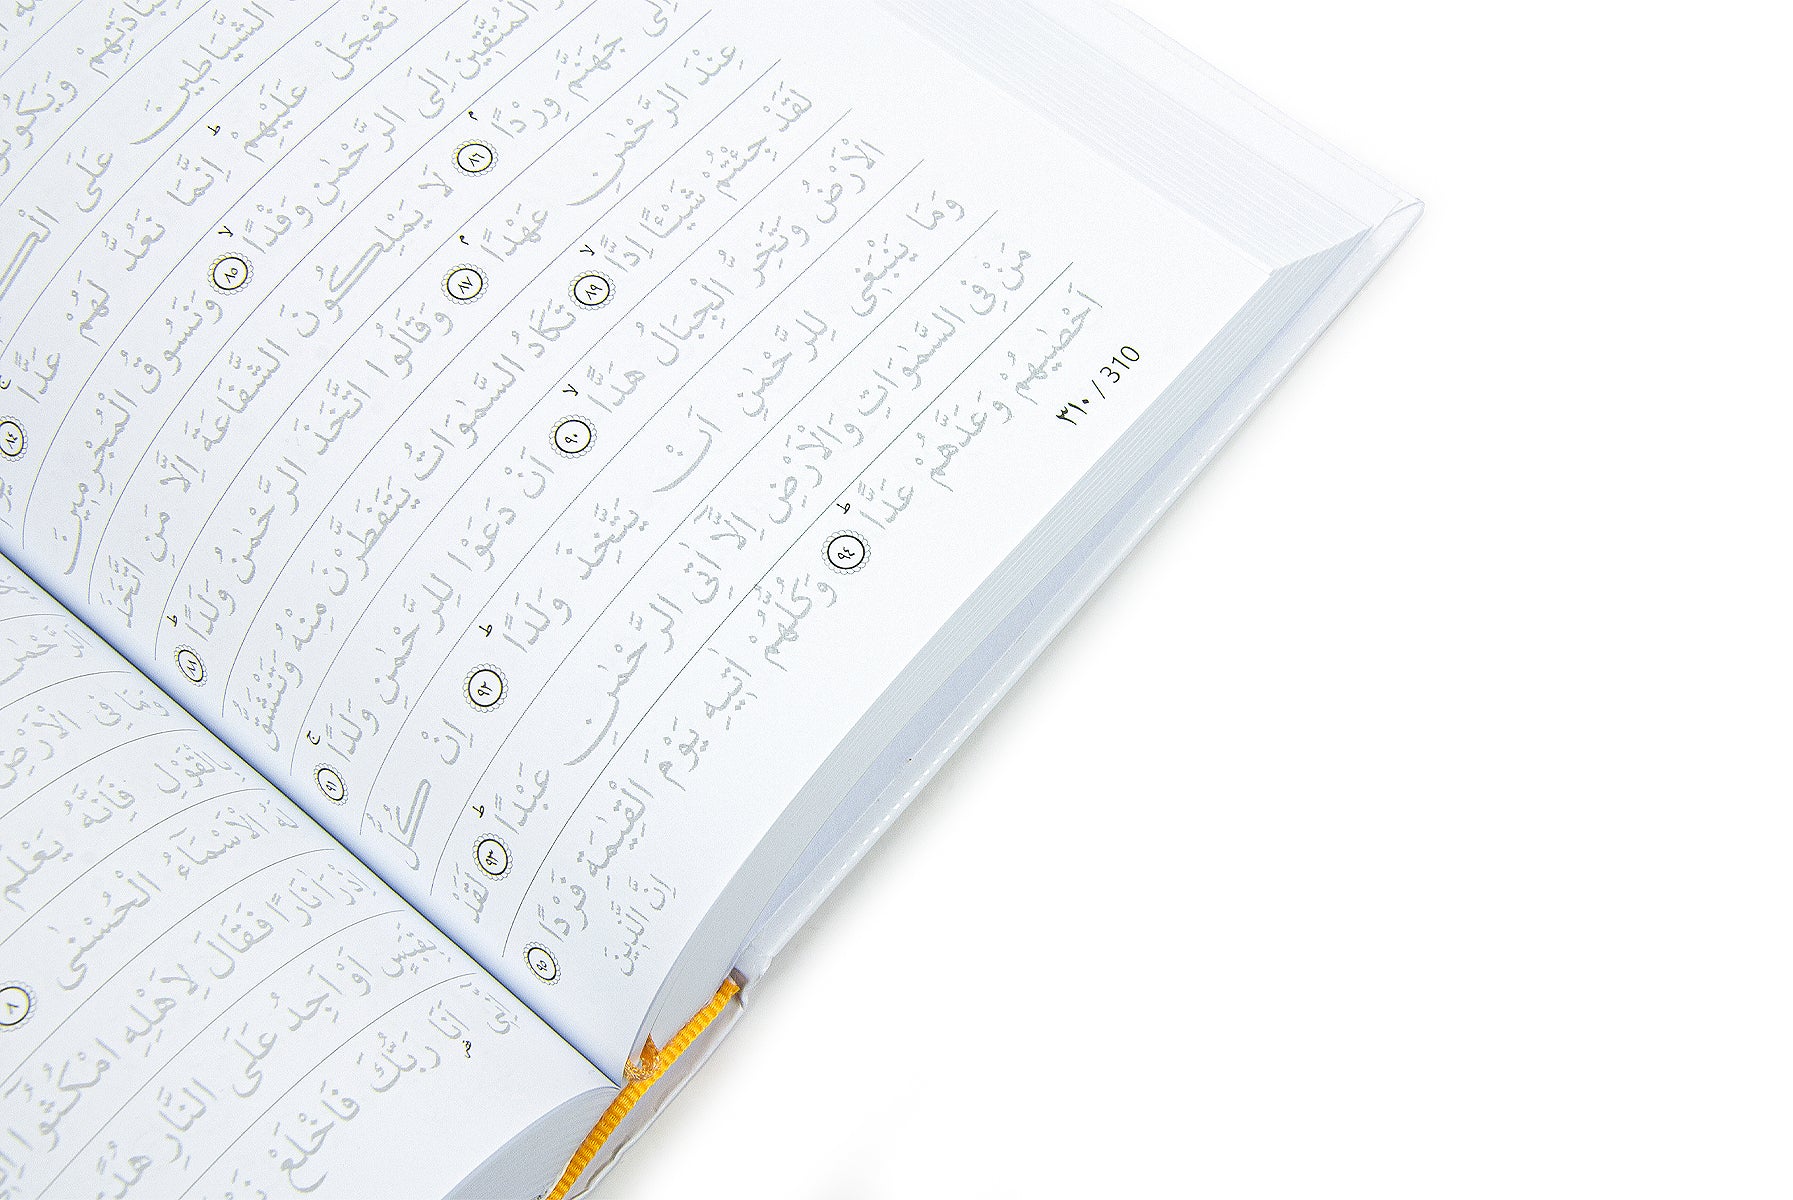 بِعِبَادَتِهِمْ وَيَكُونُونَ
الشَّيَاطِينَ عَلَى
تَعْجَلْ عَلَيْهِمْ ۜ اِنَّمَا نَعُدُّ لَهُمْ عَدًّا ﴿٨٤﴾
الْمُتَّقِينَ اِلَى الرَّحْمٰنِ وَفْدًا ﴿٨٥﴾ وَنَسُوقُ الْمُجْرِمِينَ
اِلٰى جَهَنَّمَ وِرْدًا ﴿٨٦﴾ لَا يَمْلِكُونَ الشَّفَاعَةَ اِلَّا مَنِ اتَّخَذَ
عِنْدَ الرَّحْمٰنِ عَهْدًا ﴿٨٧﴾ وَقَالُوا اتَّخَذَ الرَّحْمٰنُ وَلَدًا ﴿٨٨﴾
لَقَدْ جِئْتُمْ شَيْـًٔا اِدًّا ﴿٨٩﴾ تَكَادُ السَّمٰوَاتُ يَتَفَطَّرْنَ مِنْهُ وَتَنْشَقُّ
الْاَرْضُ وَتَخِرُّ الْجِبَالُ هَدًّا ﴿٩٠﴾ اَنْ دَعَوْا لِلرَّحْمٰنِ وَلَدًا ﴿٩١﴾
وَمَا يَنْبَغِى لِلرَّحْمٰنِ اَنْ يَتَّخِذَ وَلَدًا ﴿٩٢﴾ اِنْ كُلُّ
مَنْ فِى السَّمٰوَاتِ وَالْاَرْضِ اِلَّٓا اٰتِى الرَّحْمٰنِ عَبْدًا ﴿٩٣﴾ لَقَدْ
اَحْصٰيهُمْ وَعَدَّهُمْ عَدًّا ﴿٩٤﴾ وَكُلُّهُمْ اٰتِيهِ يَوْمَ الْقِيٰمَةِ فَرْدًا ﴿٩٥﴾
اِنَّ الَّذِينَ
٣١٠ / 310
وَمَا فِى الْاَرْضِ
بِالْقَوْلِ فَاِنَّهُ يَعْلَمُ
لَهُ الْاَسْمَٓاءُ الْحُسْنٰى ﴿٨﴾
نَارًا فَقَالَ لِاَهْلِهِ امْكُثُٓوا
بِقَبَسٍ اَوْ اَجِدُ عَلَى النَّارِ هُدًى
اِنِّٓى اَنَا رَبُّكَ فَاخْلَعْ